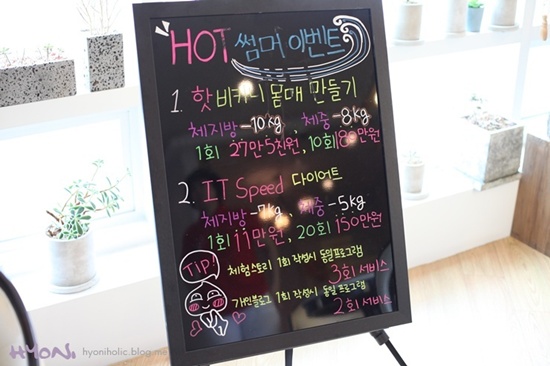 HOT 썸머 이벤트
1. 핫 비키니 몸매 만들기
체지방 -10kg, 체중 -8kg
1회 27만5천원, 10회 180만원
2. IT Speed 다이어트
체지방 -7kg, 체중 -5kg
1회 11만원, 20회 150만원
TIP!
체험스토리 1회 작성시 동일프로그램
3회 서비스
개인블로그 1회 작성시 동일프로그램
2회 서비스
HYONi hyoniholic.blog.me